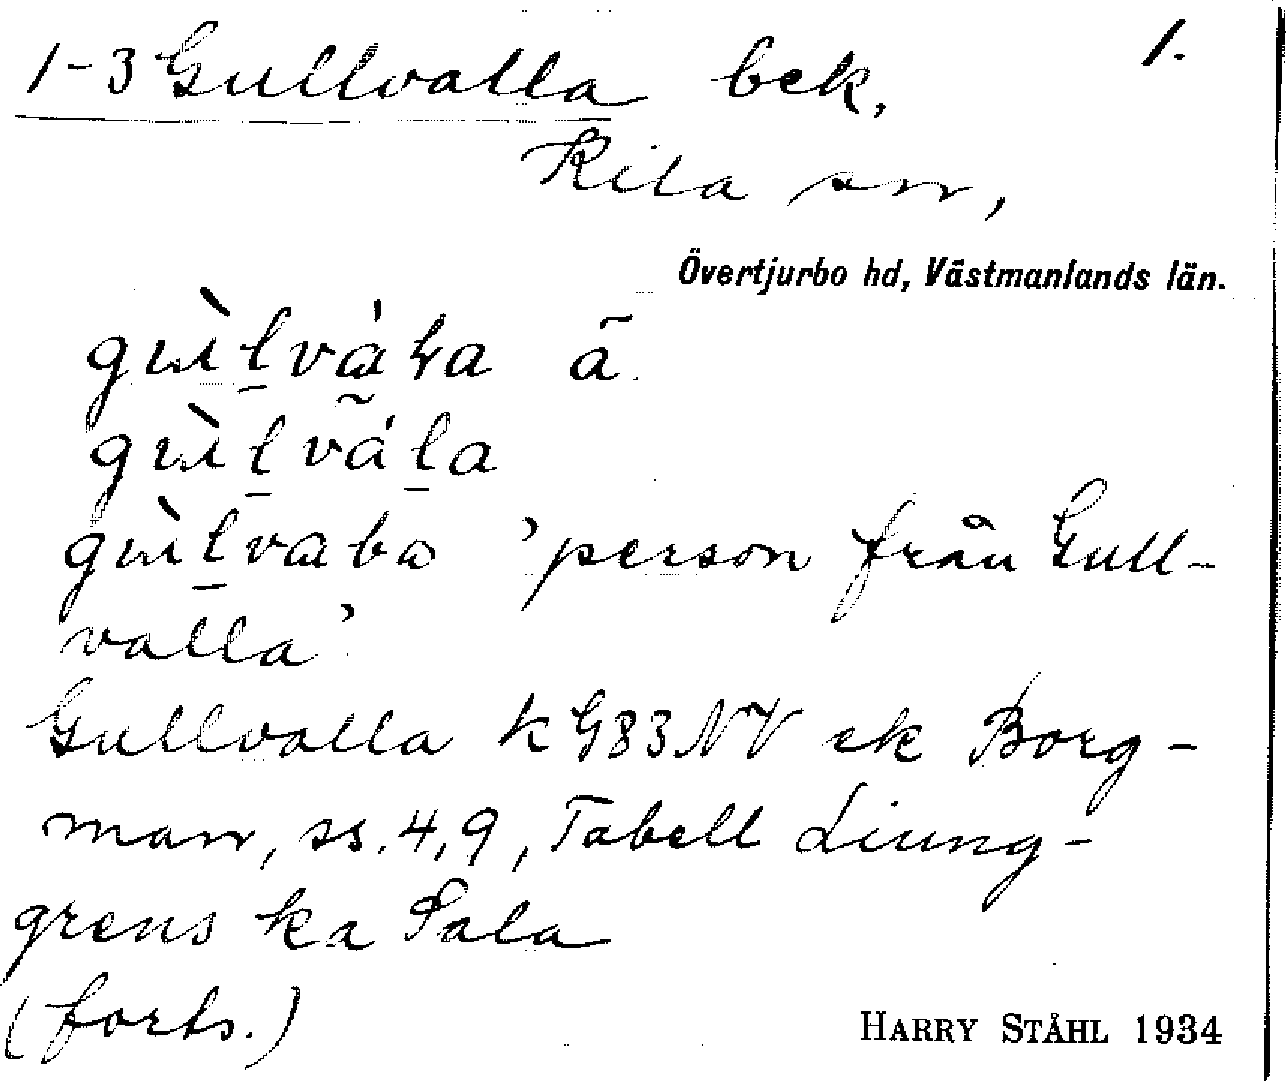 1-3 Gullvalla bek. 1.
Kila sn,
Övertjurbo hd, Västmanlands län.
ã
'person från Gull-
valla'
Gullvalla k G83NV ek Borg-
man, ss. 4, 9, Tabell Liung-
grens ka Sala
(forts.)
HARRY STÅHL 1934